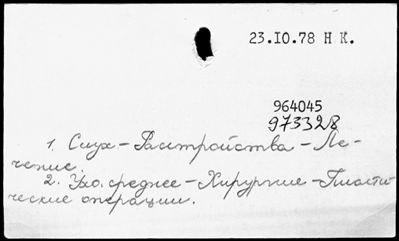 23.10.78 Н К.
964045
973328
1. Слух - Расстройства - Ле-
чение.
2. Ухо. среднее - Хирургия - Пласти-
ческие операции.